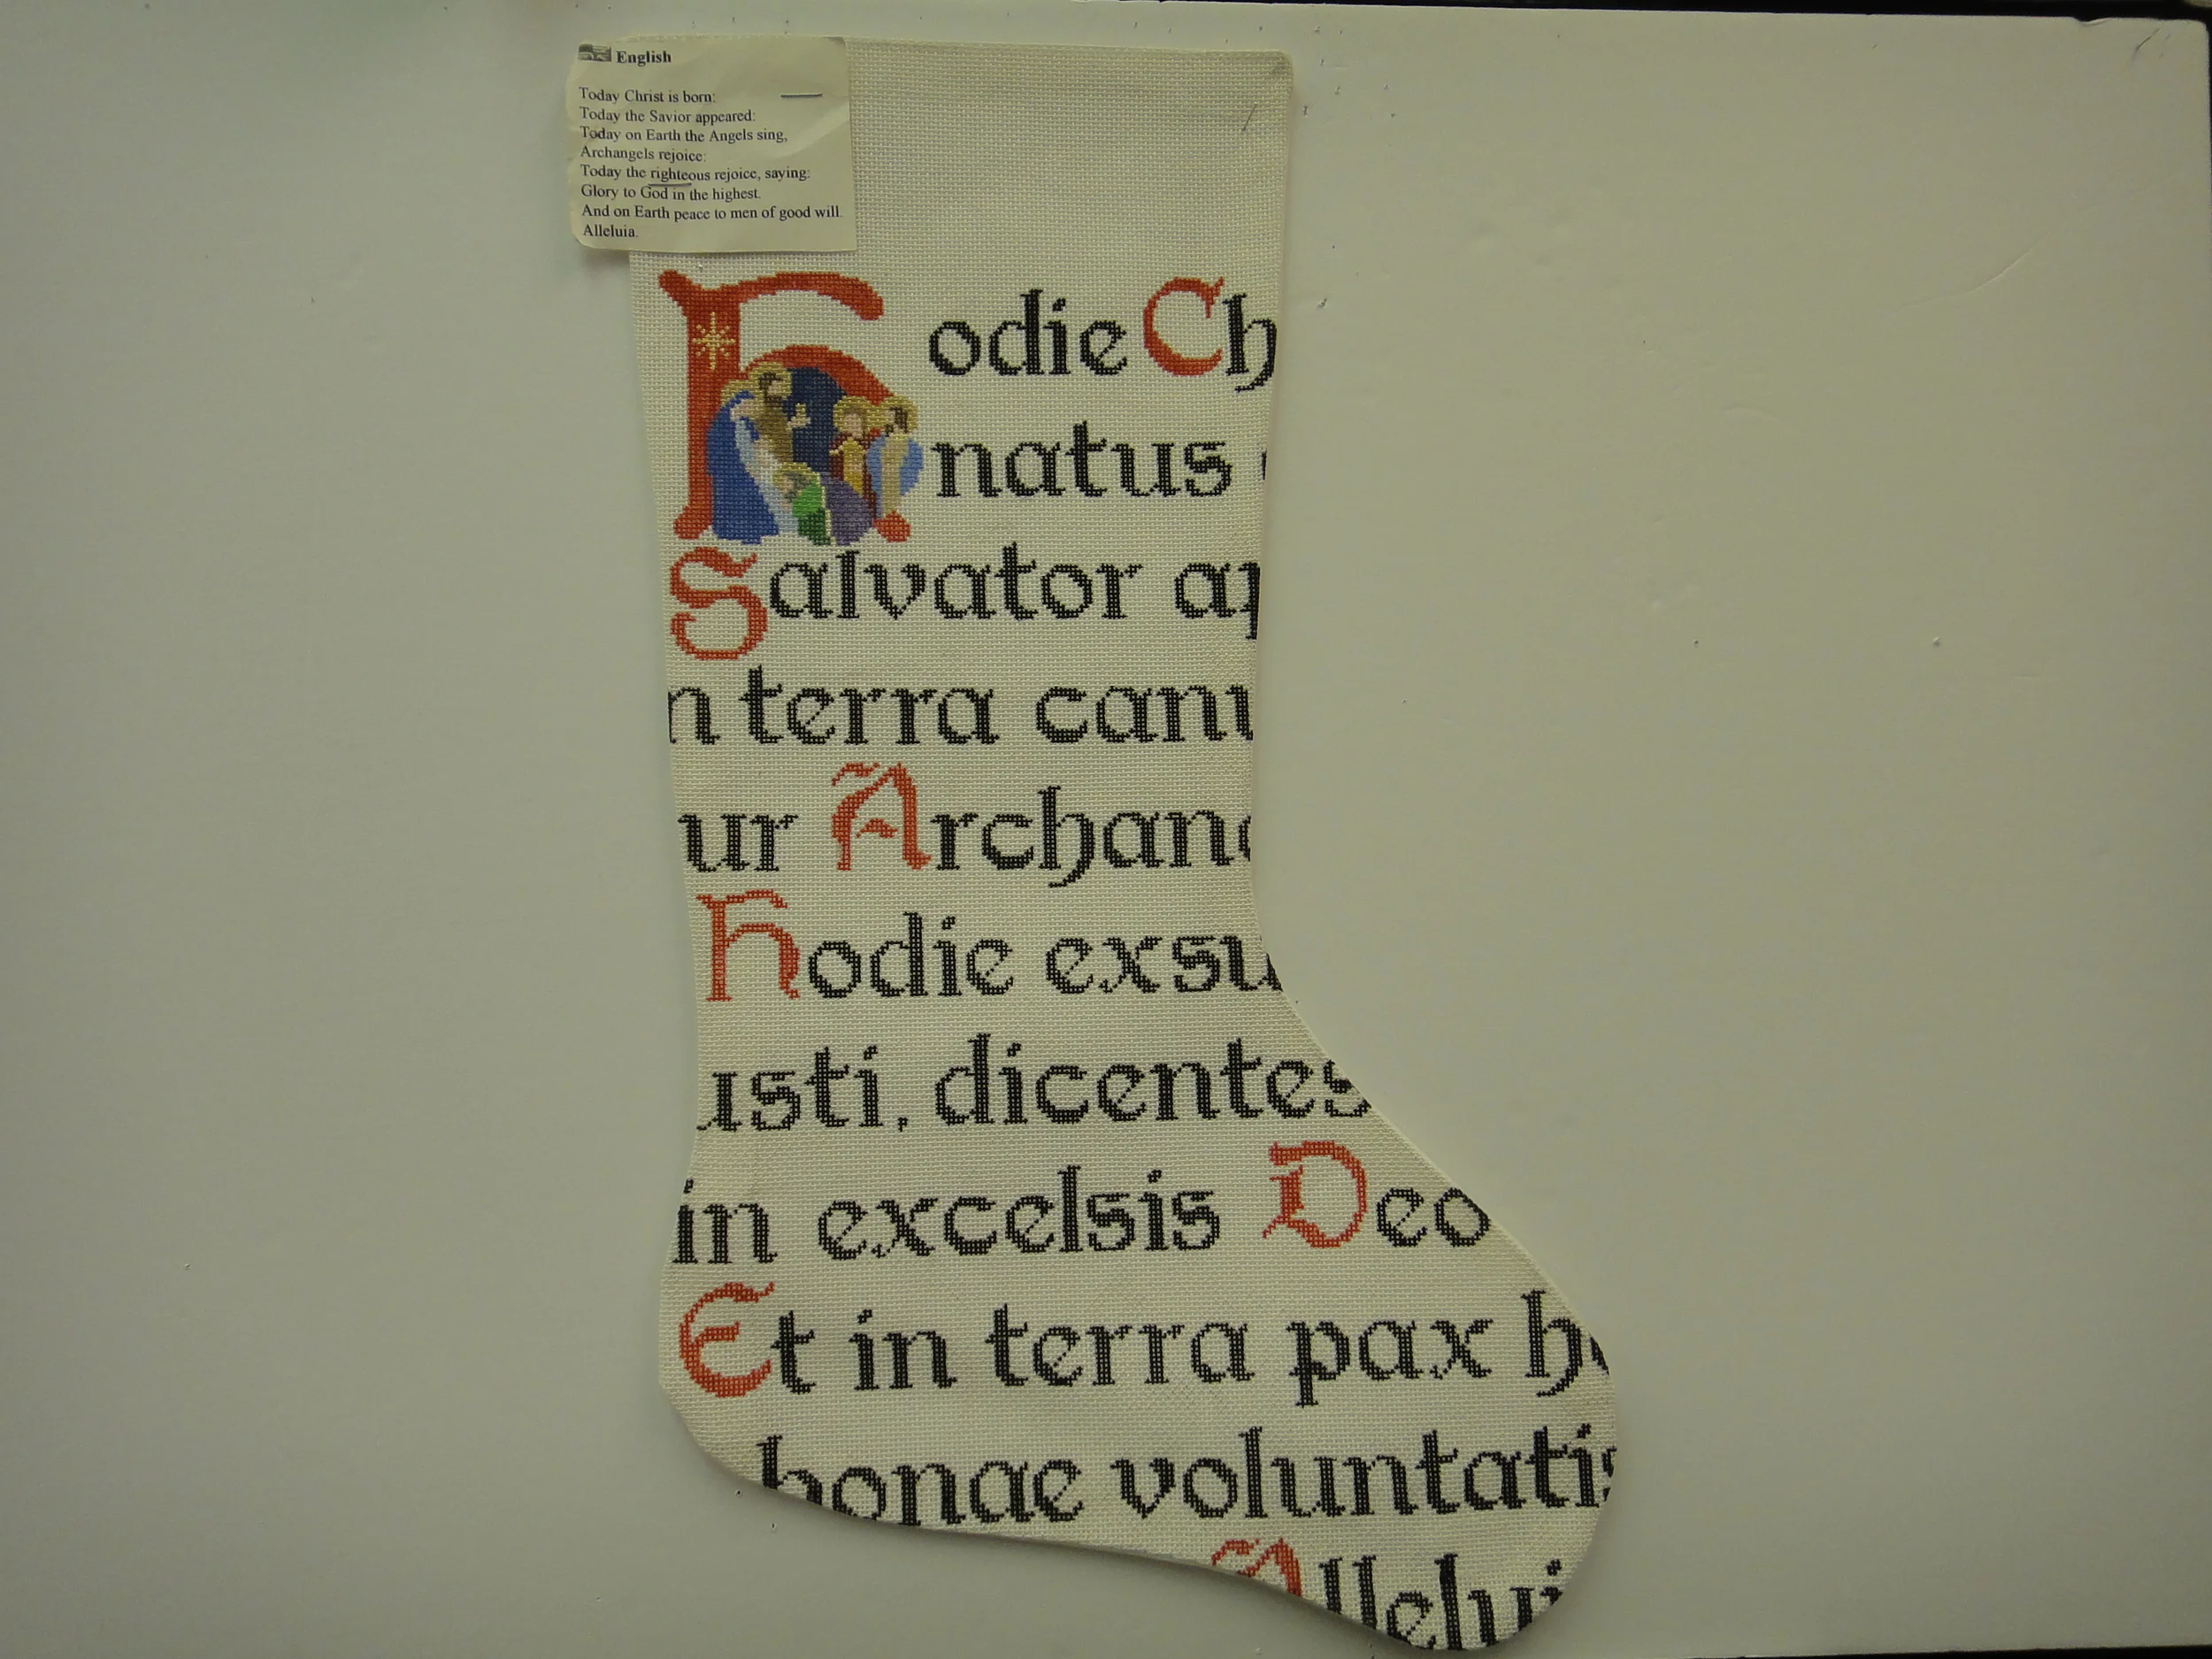 English
Today Christ is born:
Today the Savior appeared:
Today on Earth the Angels sing,
Archangels rejoice:
Today the righteous rejoice, saying:
Glory to God in the highest.
And on Earth peace to men of good will.
Alleluia.
Hodie Ch
natus
Salvator ap
n terra canu
ur Archang
Hodie exsu
usti, dicentes
in excelsis Deo
Et in terra pax ho
bonae voluntatis
Allelui